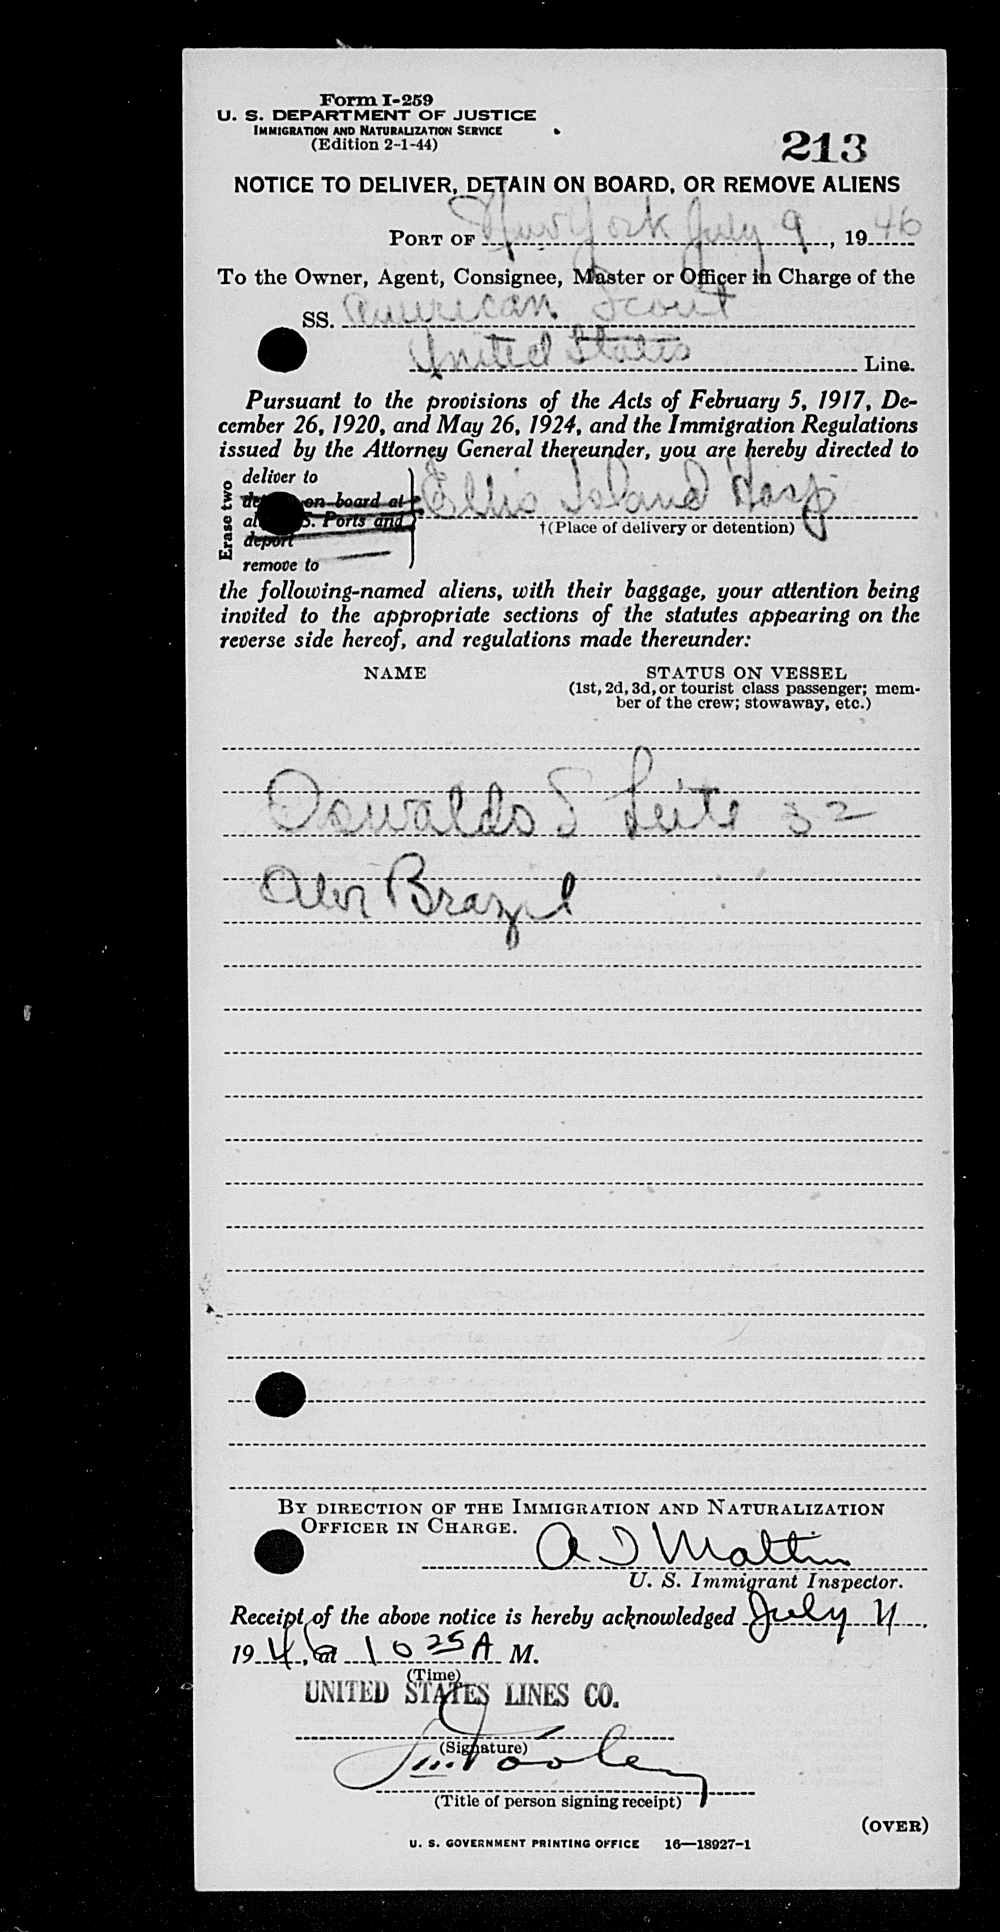 Form I-259
U. S. DEPARTMENT OF JUSTICE
IMMIGRATION AND NATURALIZATION SERVICE
(Edition 2-1-44)
213
NOTICE TO DELIVER, DETAIN ON BOARD, OR REMOVE ALIENS
PORT OF New York July 9, 1946
To the Owner, Agent, Consignee, Master or Officer in Charge of the
SS. American Scout
United States Line.
Pursuant to the provisions of the Acts of February 5, 1917, De-
cember 26, 1920, and May 26, 1924, and the Immigration Regulations
issued by the Attorney General thereunder, you are hereby directed to
Erase two
deliver to
on board at
S. Ports and
deport
remove to
Ellis Island Hosp
†(Place of delivery or detention)
the following-named aliens, with their baggage, your attention being
invited to the appropriate sections of the statutes appearing on the
reverse side hereof, and regulations made thereunder:
NAME STATUS ON VESSEL
(1st, 2d, 3d, or tourist class passenger; mem-
ber of the crew; stowaway, etc.)
Oswaldo S Leite 32
Brazil
BY DIRECTION OF THE IMMIGRATION AND NATURALIZATION
OFFICER IN CHARGE.
U. S. Immigrant Inspector.
Receipt of the above notice is hereby acknowledged July 11,
1946, at 10 25 A M.
(Time)
UNITED STATES LINES CO.
(Signature)
(Title of person signing receipt)
(OVER)
U. S. GOVERNMENT PRINTING OFFICE 16—18927-1